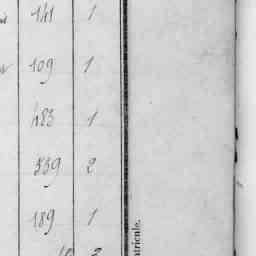 141 1
109 1
483 1
339 2
189 1
2
atricule.